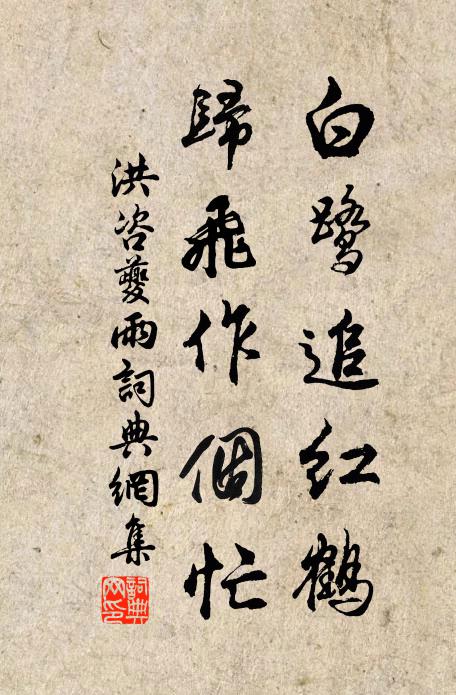 白鹭追紅鶴
歸飛作個忙
洪咨夔雨詞典網集
詞典網印